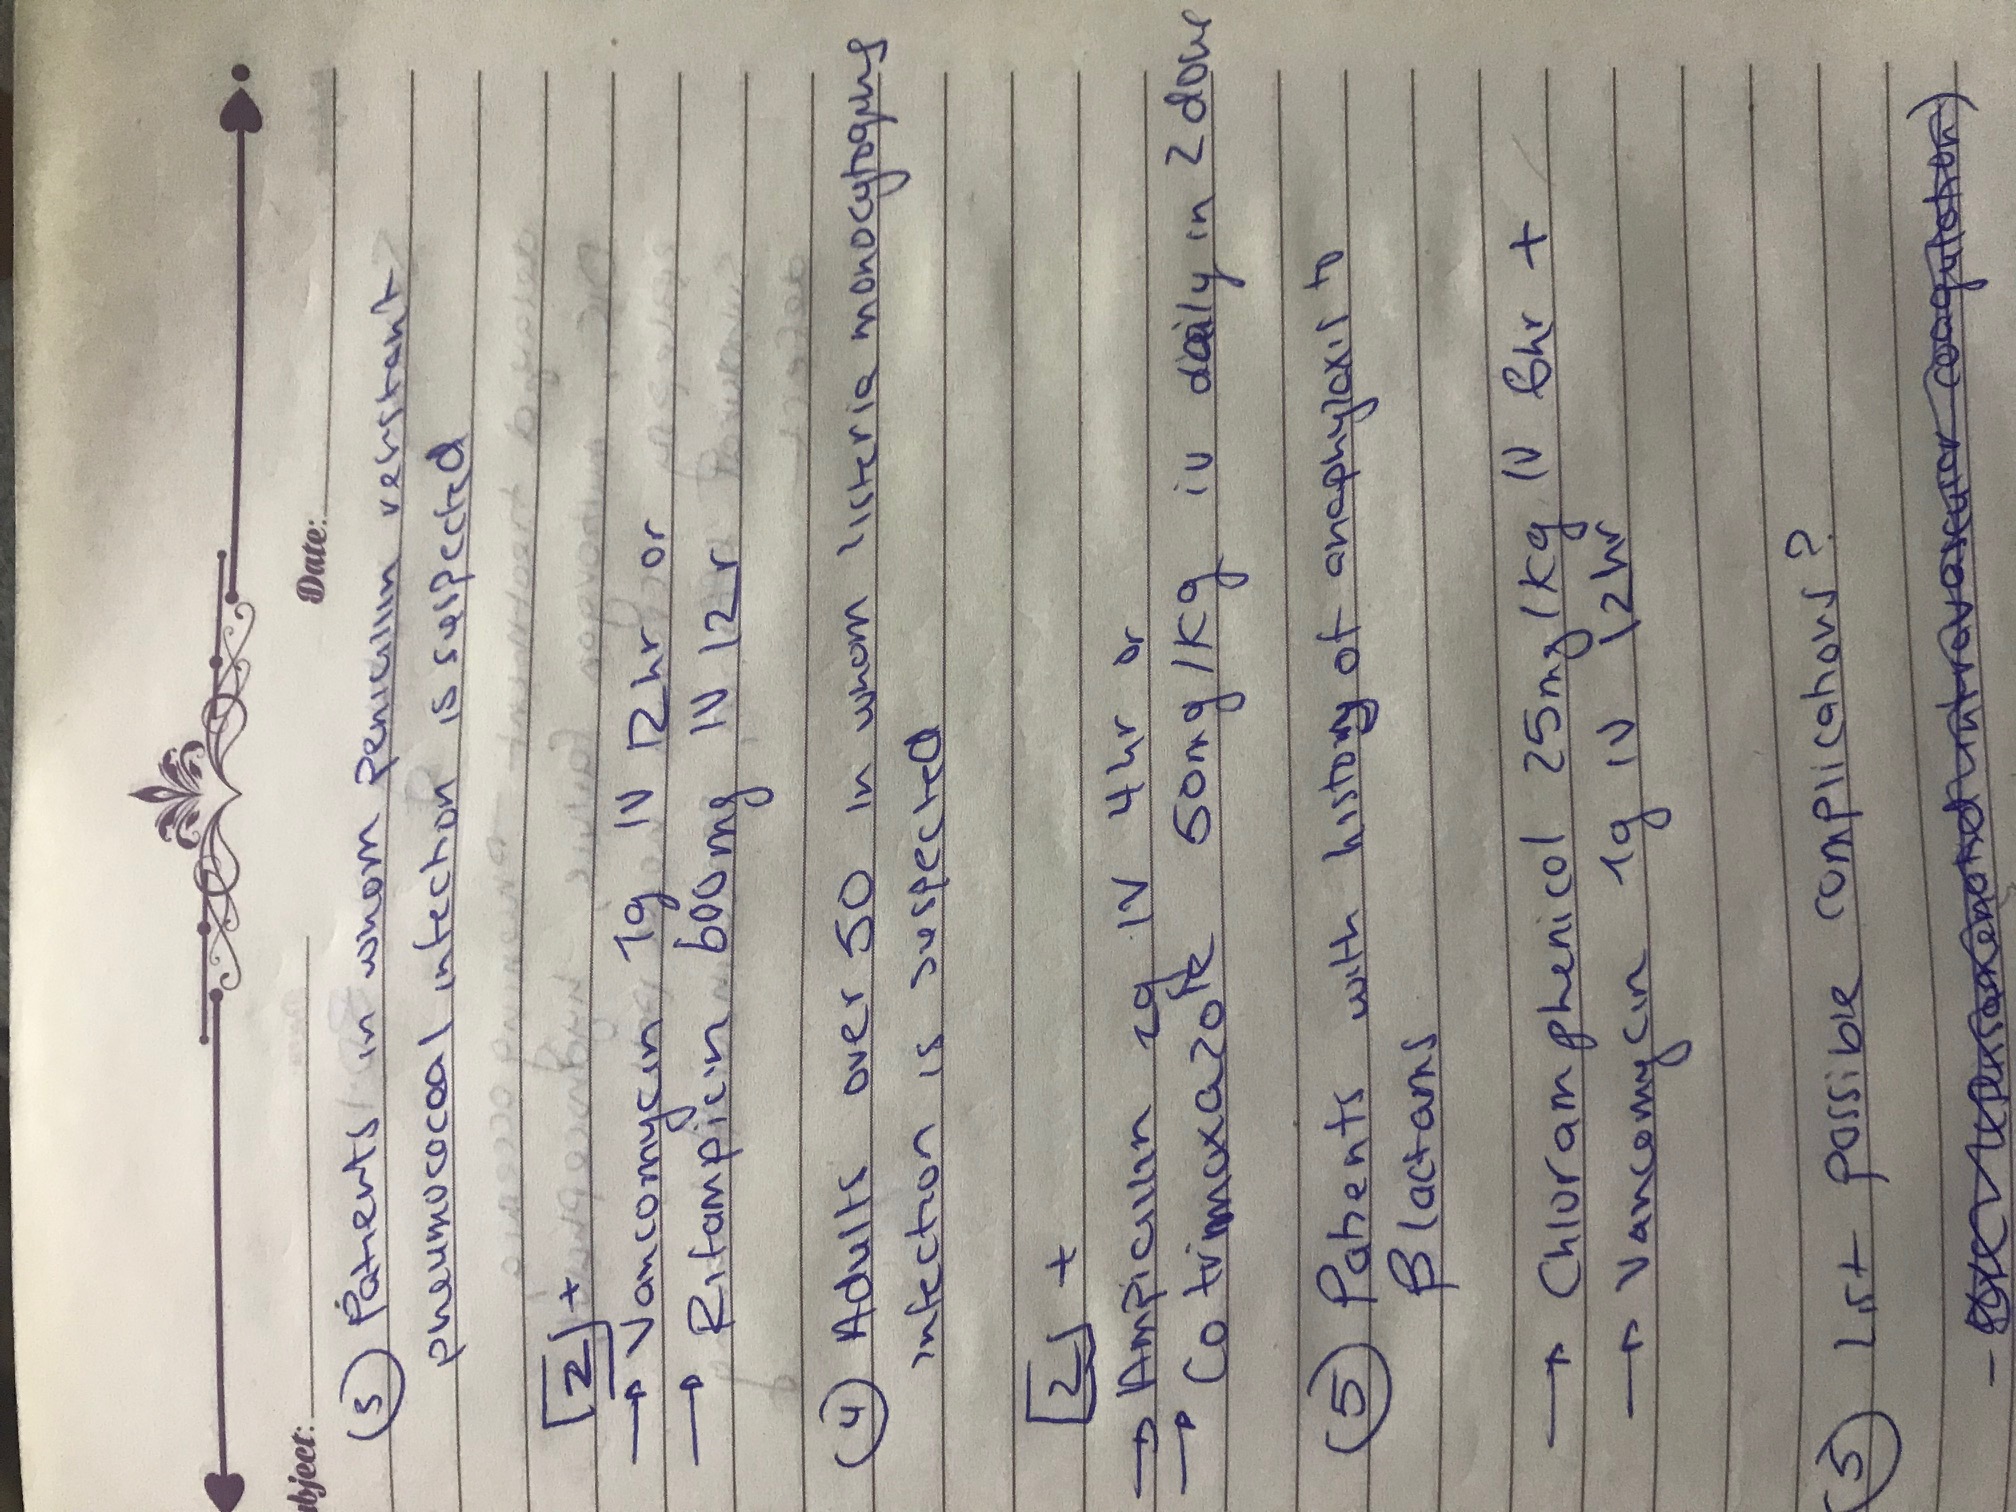 ubject:
Date:
(3) Patients in whom penicillin resistant
pneumococcal infection is suspected
[2] +
→ Vancomycin 1g IV 12hr or
→ Rifampicin 600mg IV 12r
(4) Adults over 50 in whom listeria monocytogens
infection is suspected
[2] +
→ Ampicillin 2g IV 4hr or
→ Co trimoxazole 50mg/kg iv daily in 2 dose
(5) Patients with history of anaphylaxis to
B lactams
→ Chloramphenicol 25mg/kg IV 6hr +
→ Vancomycin 1g IV 12hr
(5) List possible complications?